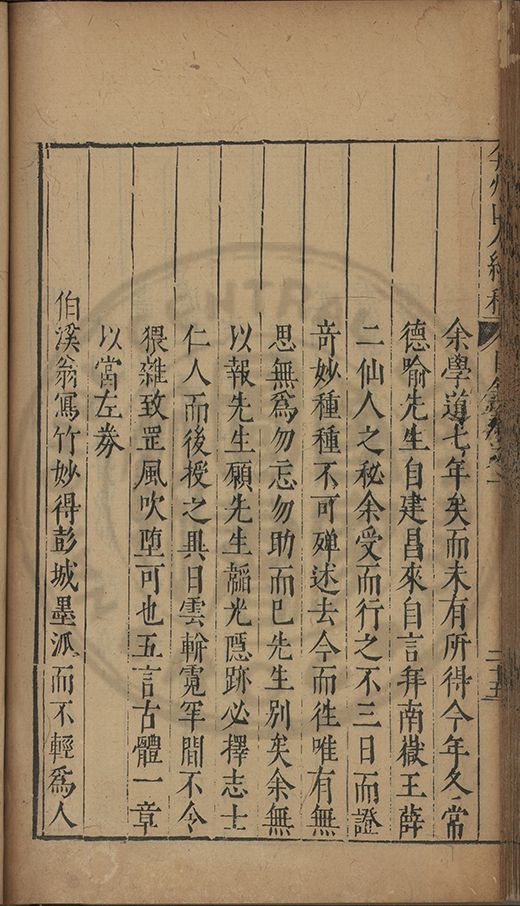 余學道七年矣而未有所得今年冬常
德喻先生自建昌來自言拜南嶽王薛
二仙人之秘余受而行之不三日而證
竒妙種種不可殫述去今而徃唯有無
思無爲勿忘勿助而巳先生别矣余無
以報先生願先生韜光隱跡必擇志士
仁人而後授之異日雲軿霓罕間不令
猥雜致罡風吹墮可也五言古體一章
以當左券
伯溪翁寫竹妙得彭城墨派而不輕爲人